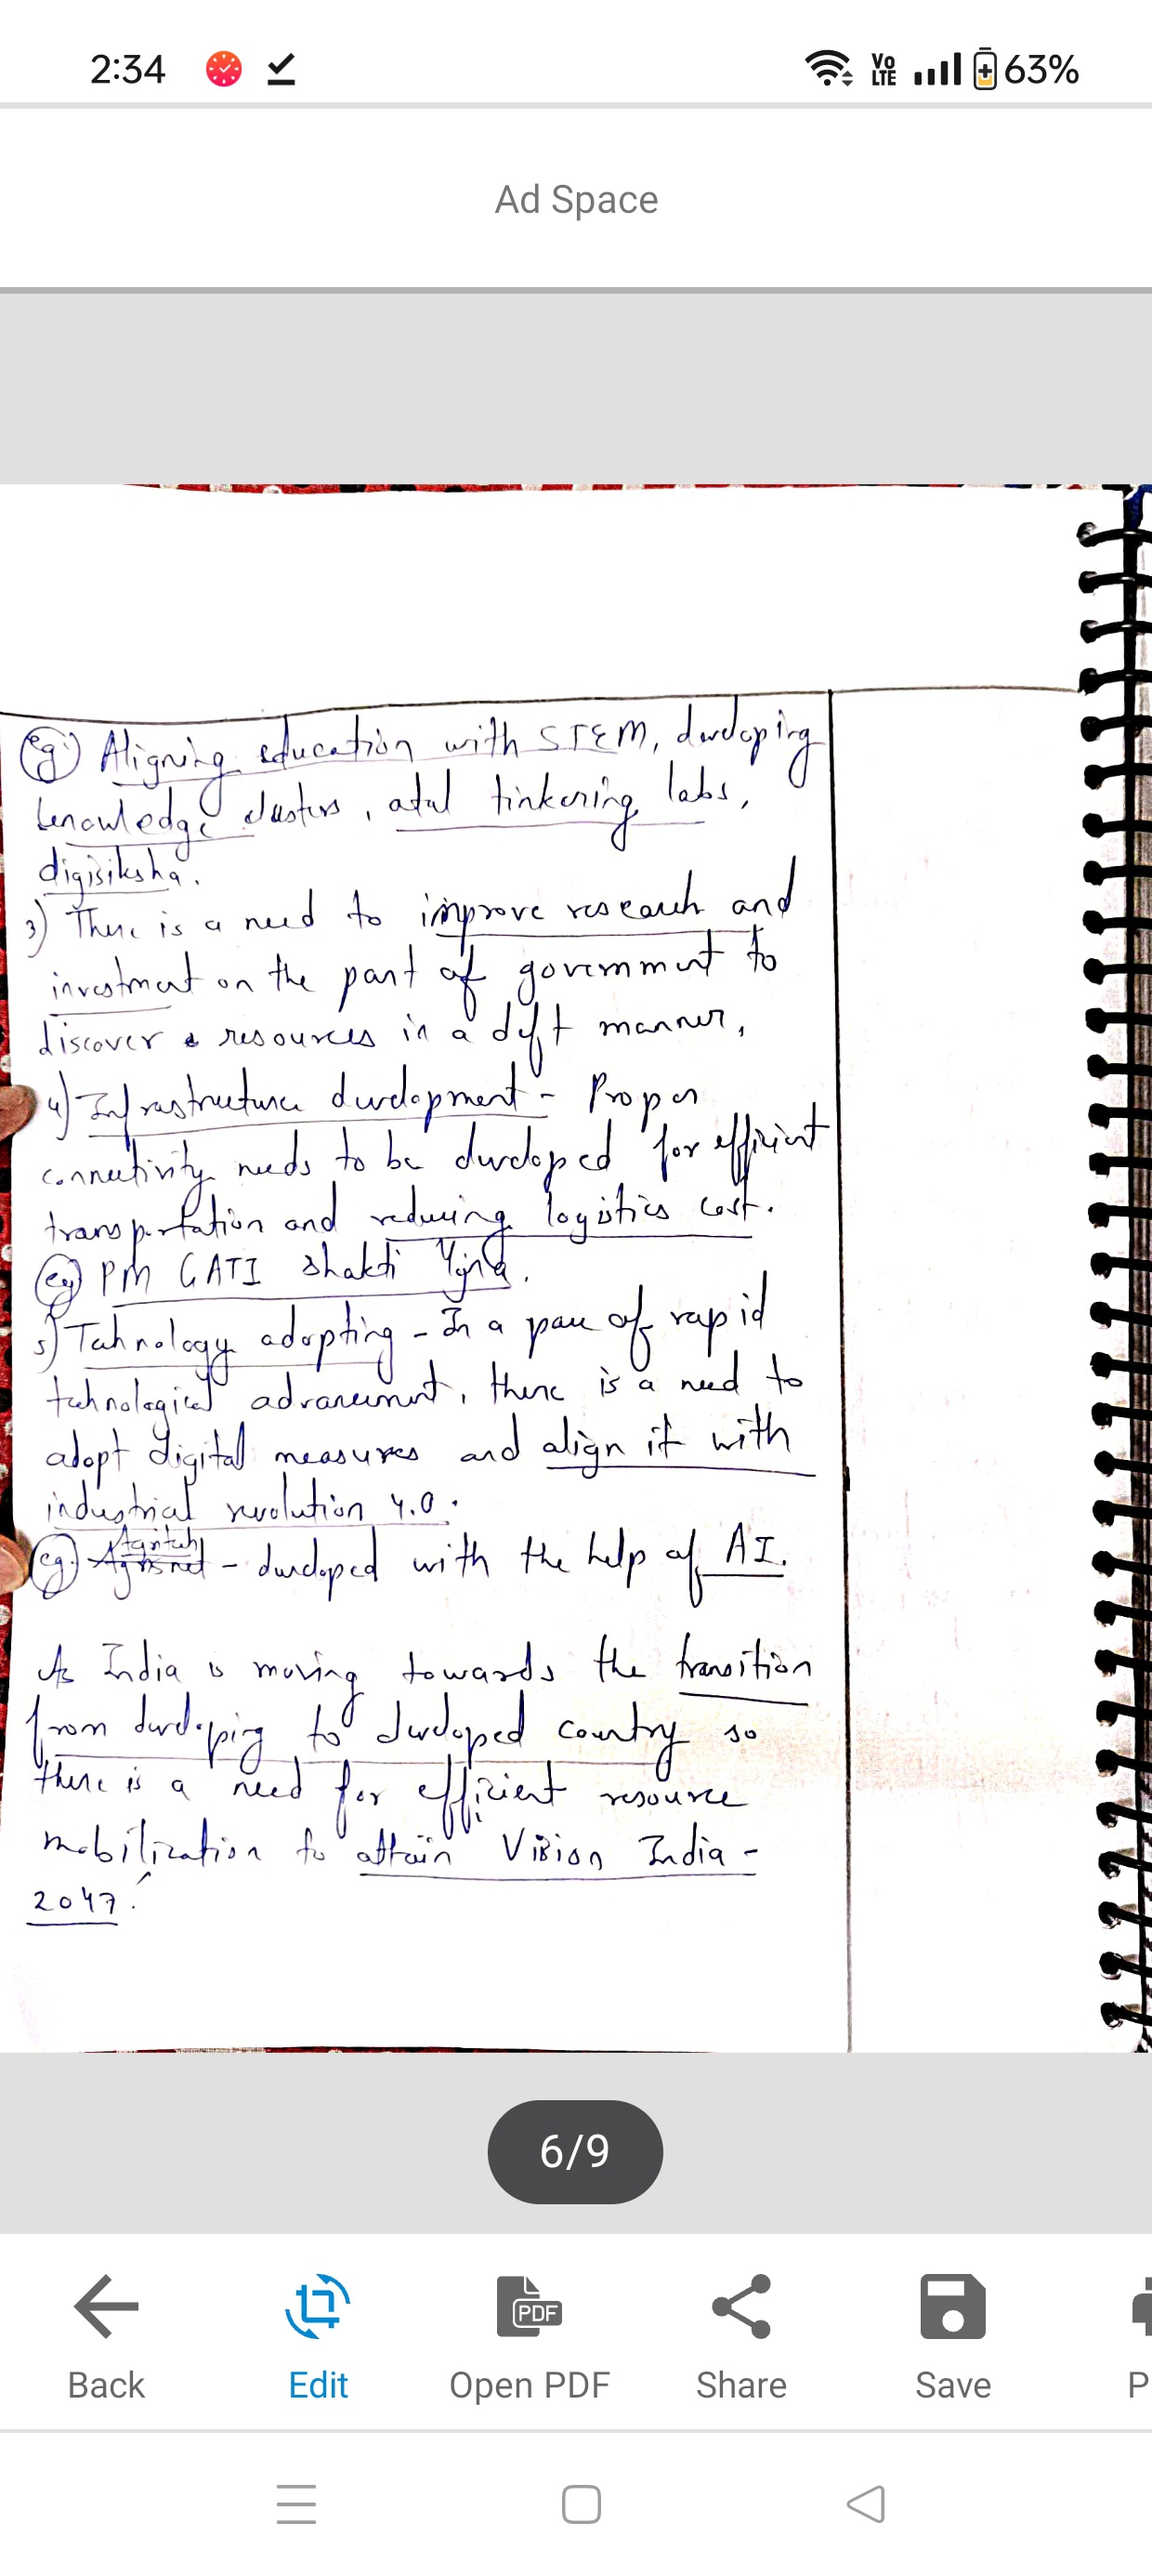 2:34
Vo LTE
63%
Ad Space
eg) Aligning education with STEM, developing
knowledge clusters, atal tinkering labs,
digisiksha.
3) There is a need to improve research and
investment on the part of government to
discover resources in a deft manner,
4) Infrastructure development - Proper
connectivity needs to be developed for efficient
transportation and reducing logistics cost.
eg) PM GATI Shakti Yjna.
5) Technology adopting - In a pace of rapid
technological advancement, there is a need to
adopt digital measures and align it with
industrial revolution 4.0.
eg) Agritech - developed with the help of AI.
As India is moving towards the transition
from developing to developed country so
there is a need for efficient resource
mobilization to attain Vision India -
2047.
6/9
PDF
Back
Edit
Open PDF
Share
Save
P